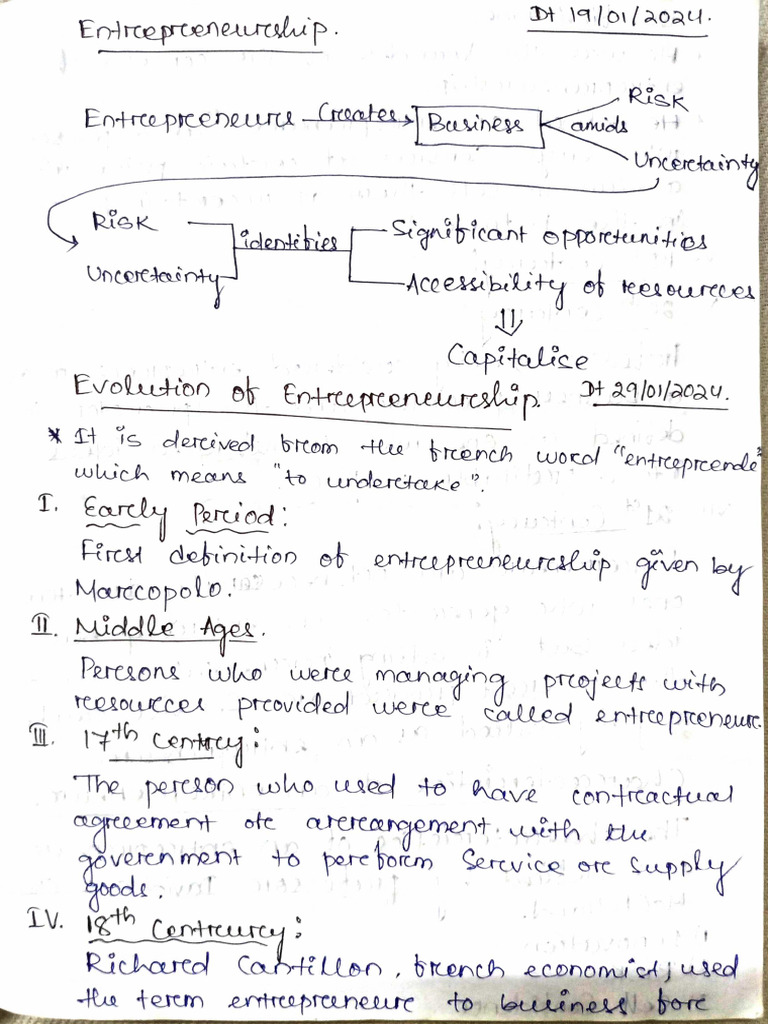 Entrepreneurship.
Dt 19/01/2024.
Entrepreneurs Creates Business amids Risk
Uncertainty
Risk
Uncertainty
identifies
Significant opportunities
Accessibility of resources
⇓
Capitalise
Evolution of Entrepreneurship. Dt 29/01/2024.
* It is derived from the french word "entreprende"
which means "to undertake".
I. Early Period:
First definition of entrepreneurship given by
Marcopolo.
II. Middle Ages.
Persons who were managing projects with
resources provided were called entrepreneur.
III. 17th Centrey:
The person who used to have contractual
agreement or arrangement with the
government to perform Service or supply
goods.
IV. 18th Centrury:
Richard Cantillon, french economist, used
the term entrepreneur to business for